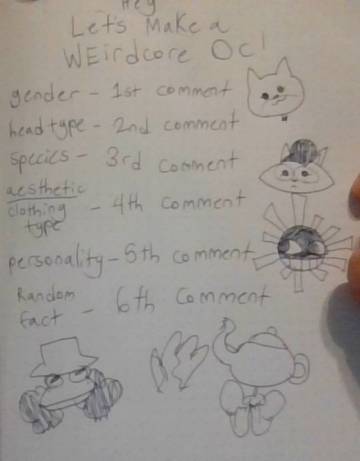 Hey
Let's Make a
WEirdcore Oc!
gender - 1st comment
head type - 2nd comment
species - 3rd comment
aesthetic
clothing - 4th comment
type
personality - 5th comment
Random
fact - 6th Comment